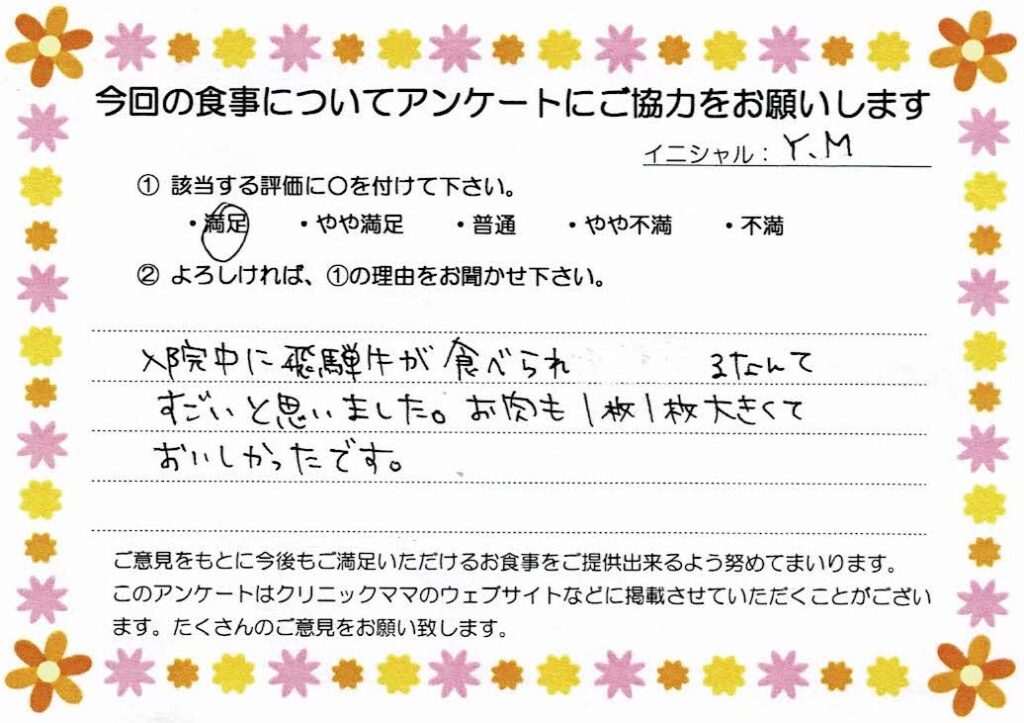 今回の食事についてアンケートにご協力をお願いします
イニシャル： Y.M
① 該当する評価に○を付けて下さい。
・満足 ・やや満足 ・普通 ・やや不満 ・不満
② よろしければ、①の理由をお聞かせ下さい。
入院中に飛騨牛が食べられ るなんて
すごいと思いました。お肉も1枚1枚大きくて
おいしかったです。
ご意見をもとに今後もご満足いただけるお食事をご提供出来るよう努めてまいります。
このアンケートはクリニックママのウェブサイトなどに掲載させていただくことがござい
ます。たくさんのご意見をお願い致します。